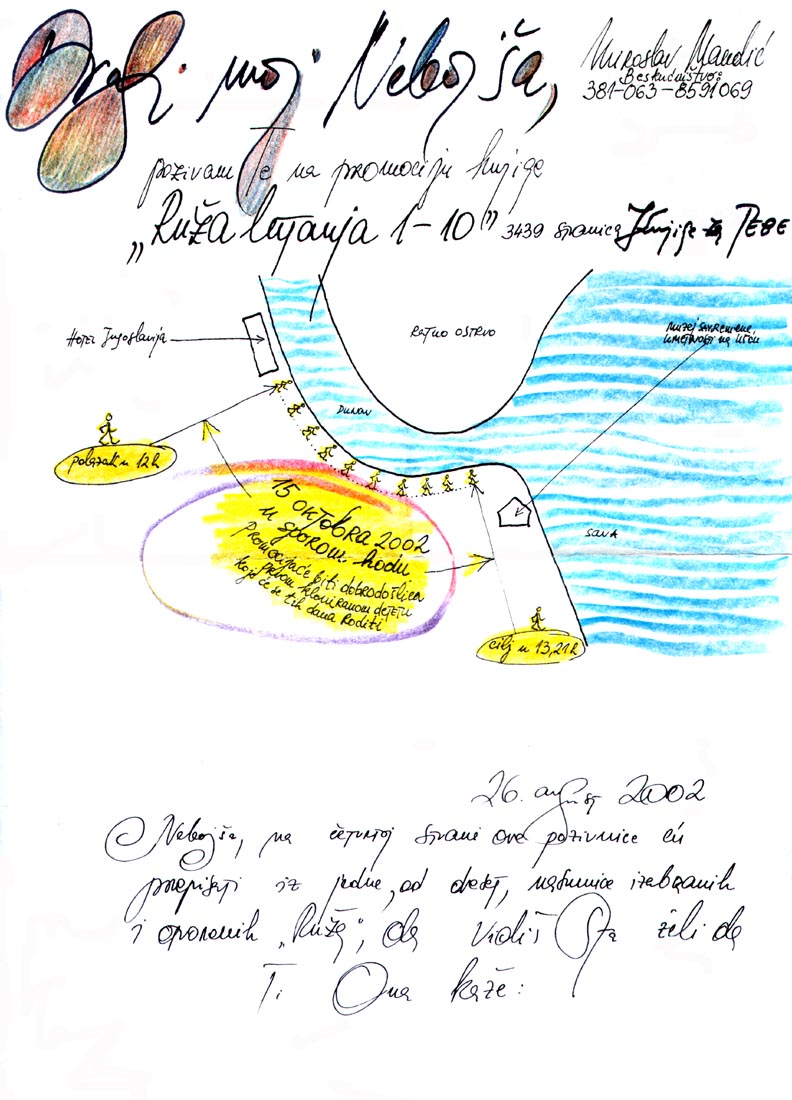 Dragi moj Nebojša,
Miroslav Mandić
Beskućništvo:
381-063-8591069
pozivam te na promociju knjige
„Ruža lutanja 1-10" 3439 stranica Knjige za TEBE
HOTEL Jugoslavija
RATNO OSTRVO
MUZEJ SAVREMENE
UMETNOSTI NA UŠĆU
DUNAV
polazak u 12h
15 OKTOBRA 2002
u sporom hodu
Promocija će biti dobrodošlica
prvom kloniranom detetu
koje će se tih dana roditi
SAVA
cilj u 13,21h
26. avgust 2002
Nebojša, na četvrtoj strani ove pozivnice ću
prepisati iz jedne, od deset, nasumice izabranih
i otvorenih „Ruža", da vidiš šta želi da
Ti Ona kaže: